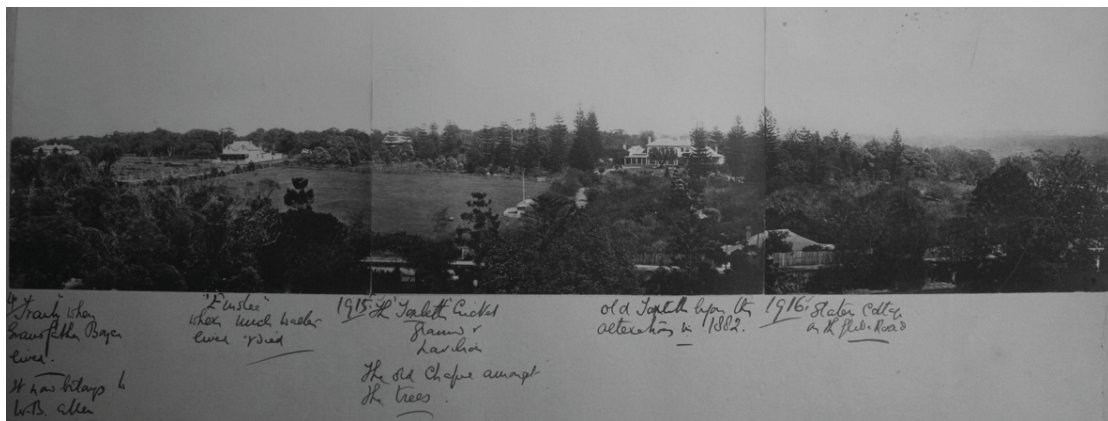 where
Grandfather Boyce
lived.
It now belongs to
W.B. Allen
where Uncle
lived & died
1915. The Toxteth Cricket
ground &
pavilion
The old Chapel amongst
the trees.
old Toxteth before the
alterations in 1882.
1916. Slater Cottage
on the Glebe Road